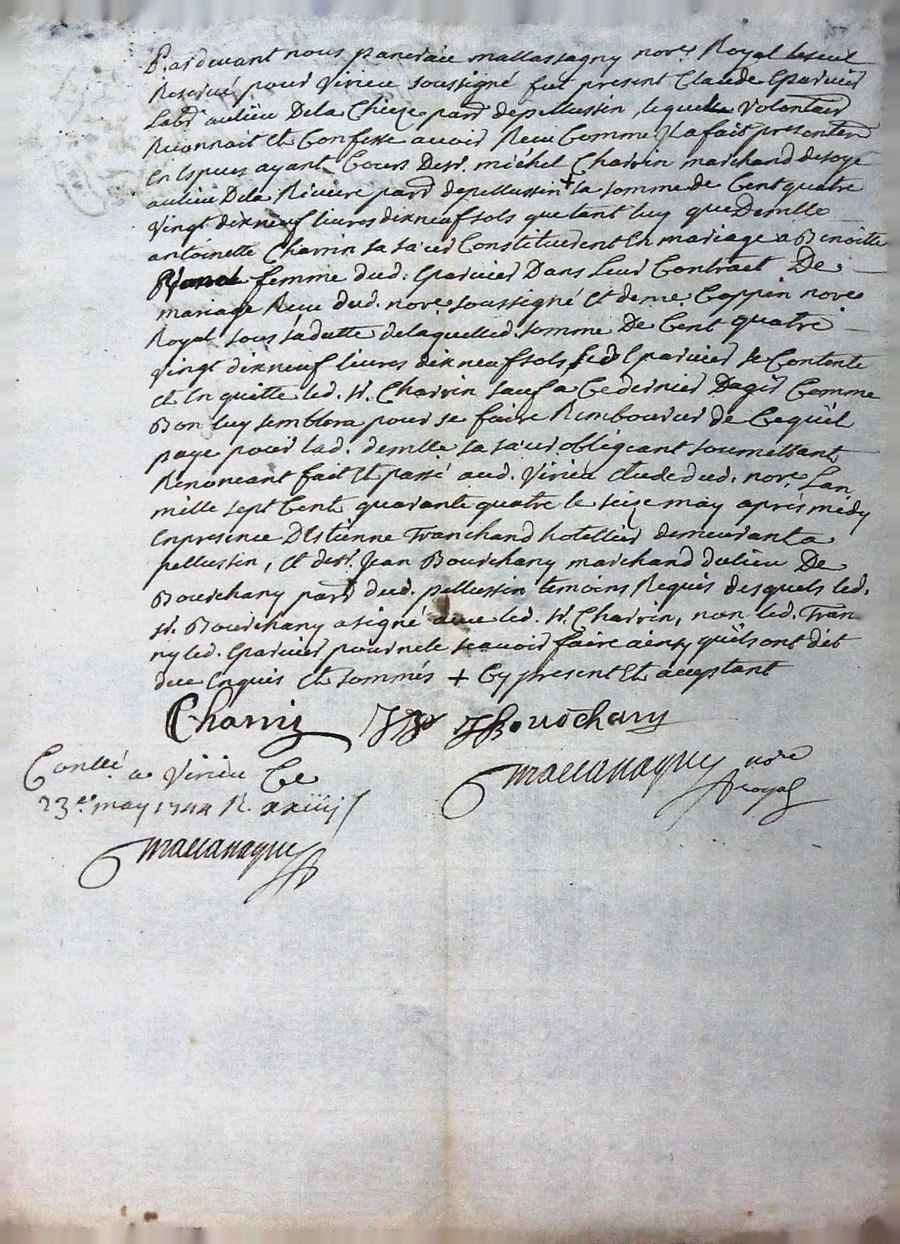 Pardevant nous pancrace mallassagny nore. Royal le seul
Reservé pour virieu soussigné fut present Claude Eparvier
Labr. au lieu De la Chieze parr. de pellussin, lequel volontair
Reconnait et Confesse avoir Receu Comme il a fait presentem
En Especes ayant Cours De sr. michel Charvin marchand de soye
au lieu De la Riviere parr. de pellussin + la somme de Cent quatre
vingt dix neuf livres dix neuf sols que tant luy que Demlle
antoinette Charvin sa sœur Constituerent En mariage a Benoitte
femme dud. Eparvier Dans Leur Contract De
mariage Receu dud. nore. soussigné et de me. Coppin nore
Royal sous sa datte de laquelle d. somme De Cent quatre
vingt dix neuf livres dix neuf sols led Eparvier se Contente
et En quitte led. sr. Charvin sauf a Ce dernier Dagir Comme
Bon luy semblera pour se faire Rembourser de Ce quil
paye pour lad. demlle sa sœur obligeant soumettant
Renonceant fait et passé aud. virieu Etude dud. nore. Lan
mille sept Cent quarante quatre le seize may après midy
En presence D'Etienne Tranchand hotellier demeurant a
pellussin, et de sr. Jean Bourchany marchand du lieu De
Bourchany parr. dud. pellussin temoins Requis desquels led.
sr. Bourchany a signé avec led. sr. Charvin, non led. Tran
ny led. Eparvier pour ne le scavoir faire ainsy quils ont dit
de ce Enquis et sommés + Cy present Et acceptant
Charvin J Bourchany
Contllé a Virieu Ce
23e. may 1744 R. xxiiij s
nore
royal